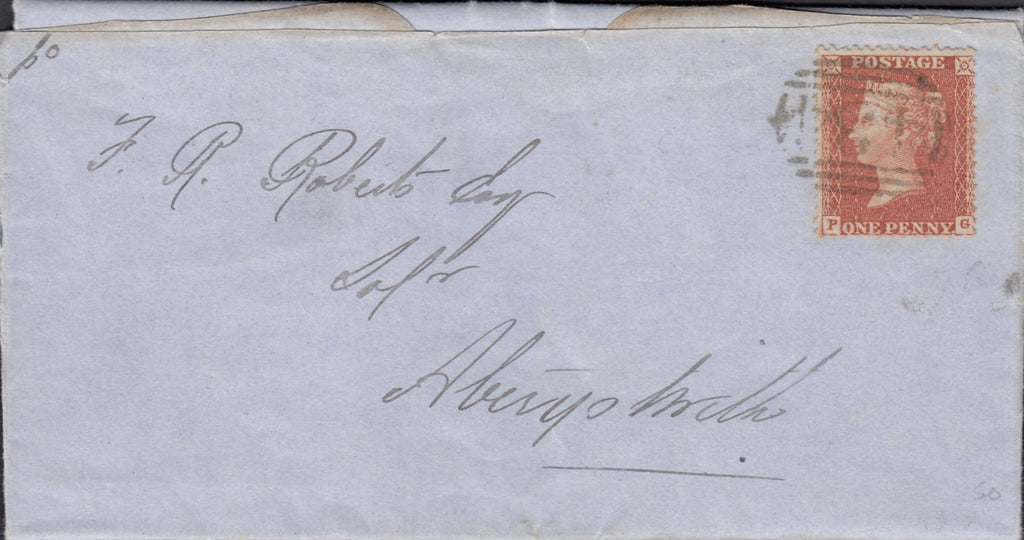 po
POSTAGE
F. R. Roberts Esq
Solr
P ONE PENNY G
Aberystwith
50